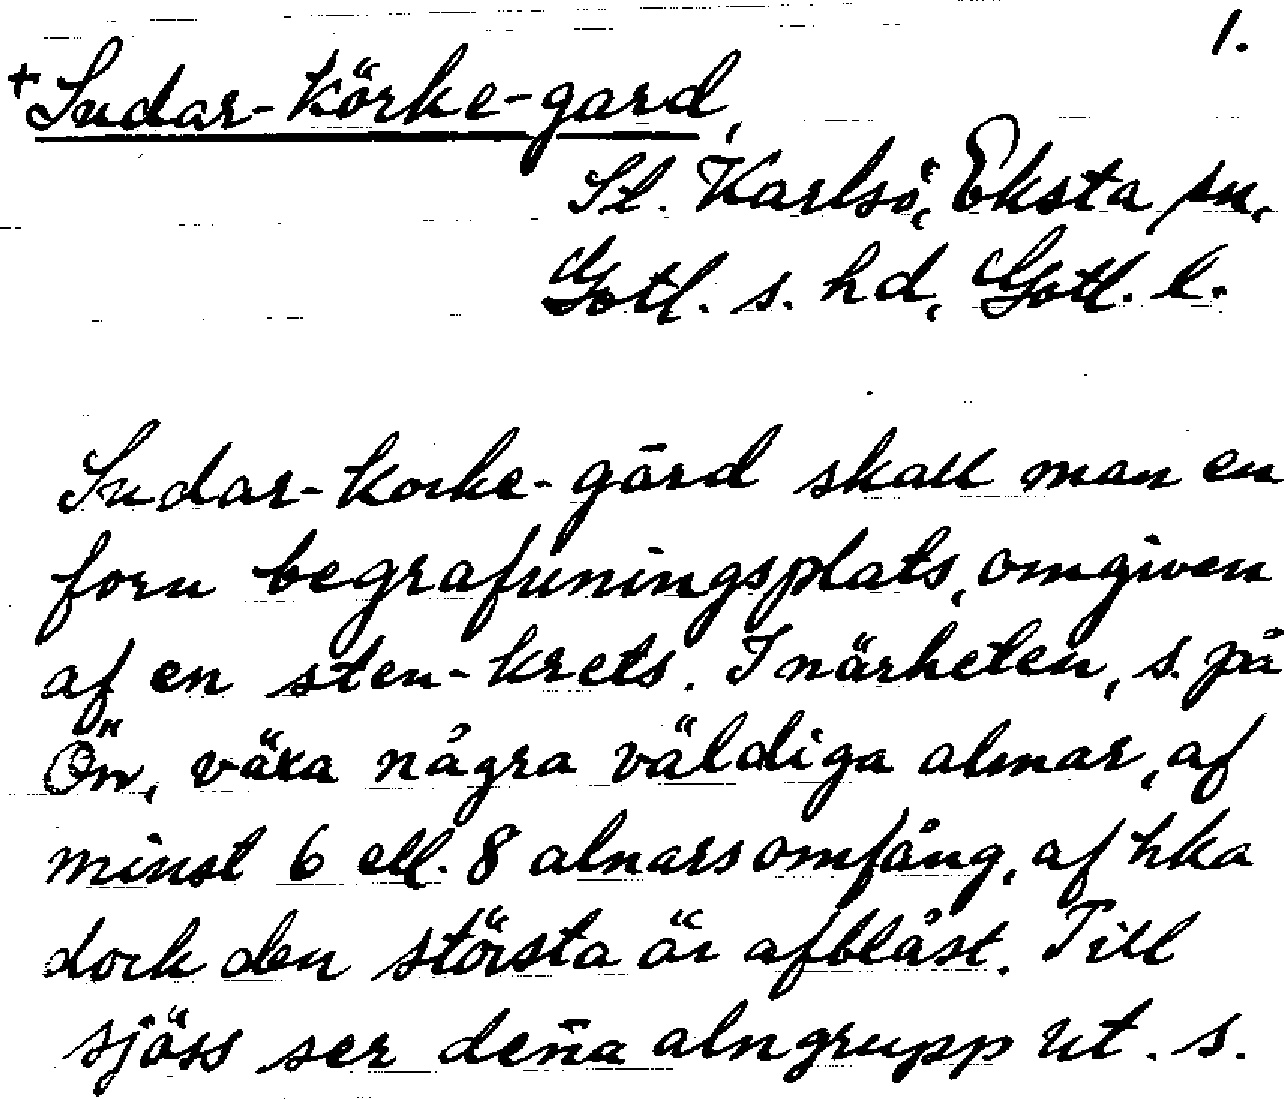 1.
+Sudar-körke-gard,
St. Karlsö, Eksta sn,
Gotl. s. hd, Gotl. l.
Sudar-korke-gārd skall man en
forn begrafuningsplats, omgiven
af en sten-krets. I närheten, s. på
Ön, växa några väldiga almar, af
minst 6 ell. 8 alnars omfång, af hka
dock den största är afblåst. Till
sjöss ser den̄a almgrupp ut. s.